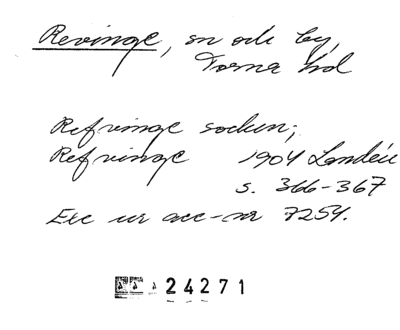 Revinge, sn och by,
Torna hd
Refvinge socken;
Refvinge 1904 Landén
s. 366-367
Exc ur acc-nr 7254.
24271